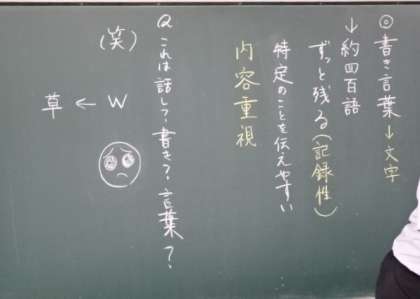 ◎書き言葉→文字
→約四百語
ずっと残る(記録性)
特定のことを伝えやすい
内容重視
Q これは話し?書き?言葉?
(笑)
W→草